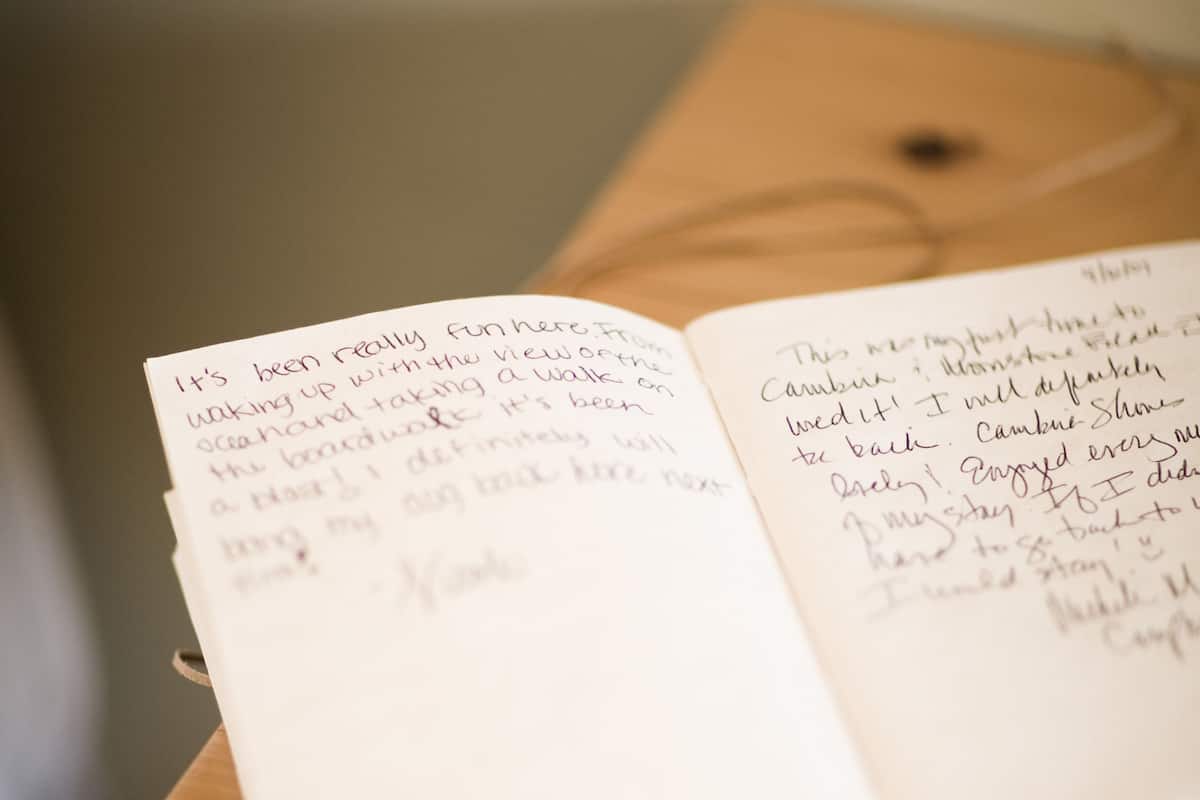 It's been really fun here. From
waking up with the view of the
ocean and taking a walk on
the boardwalk it's been
a blast! I definitely will
bring my dog back here next
time!
- Nicole
This was my first time to
Cambria & Moonstone Beach
loved it! I will definitely
be back. Cambria Shores
lovely! Enjoyed every
of my stay. If I didn't
have to go back to
I would stay!
Michele M